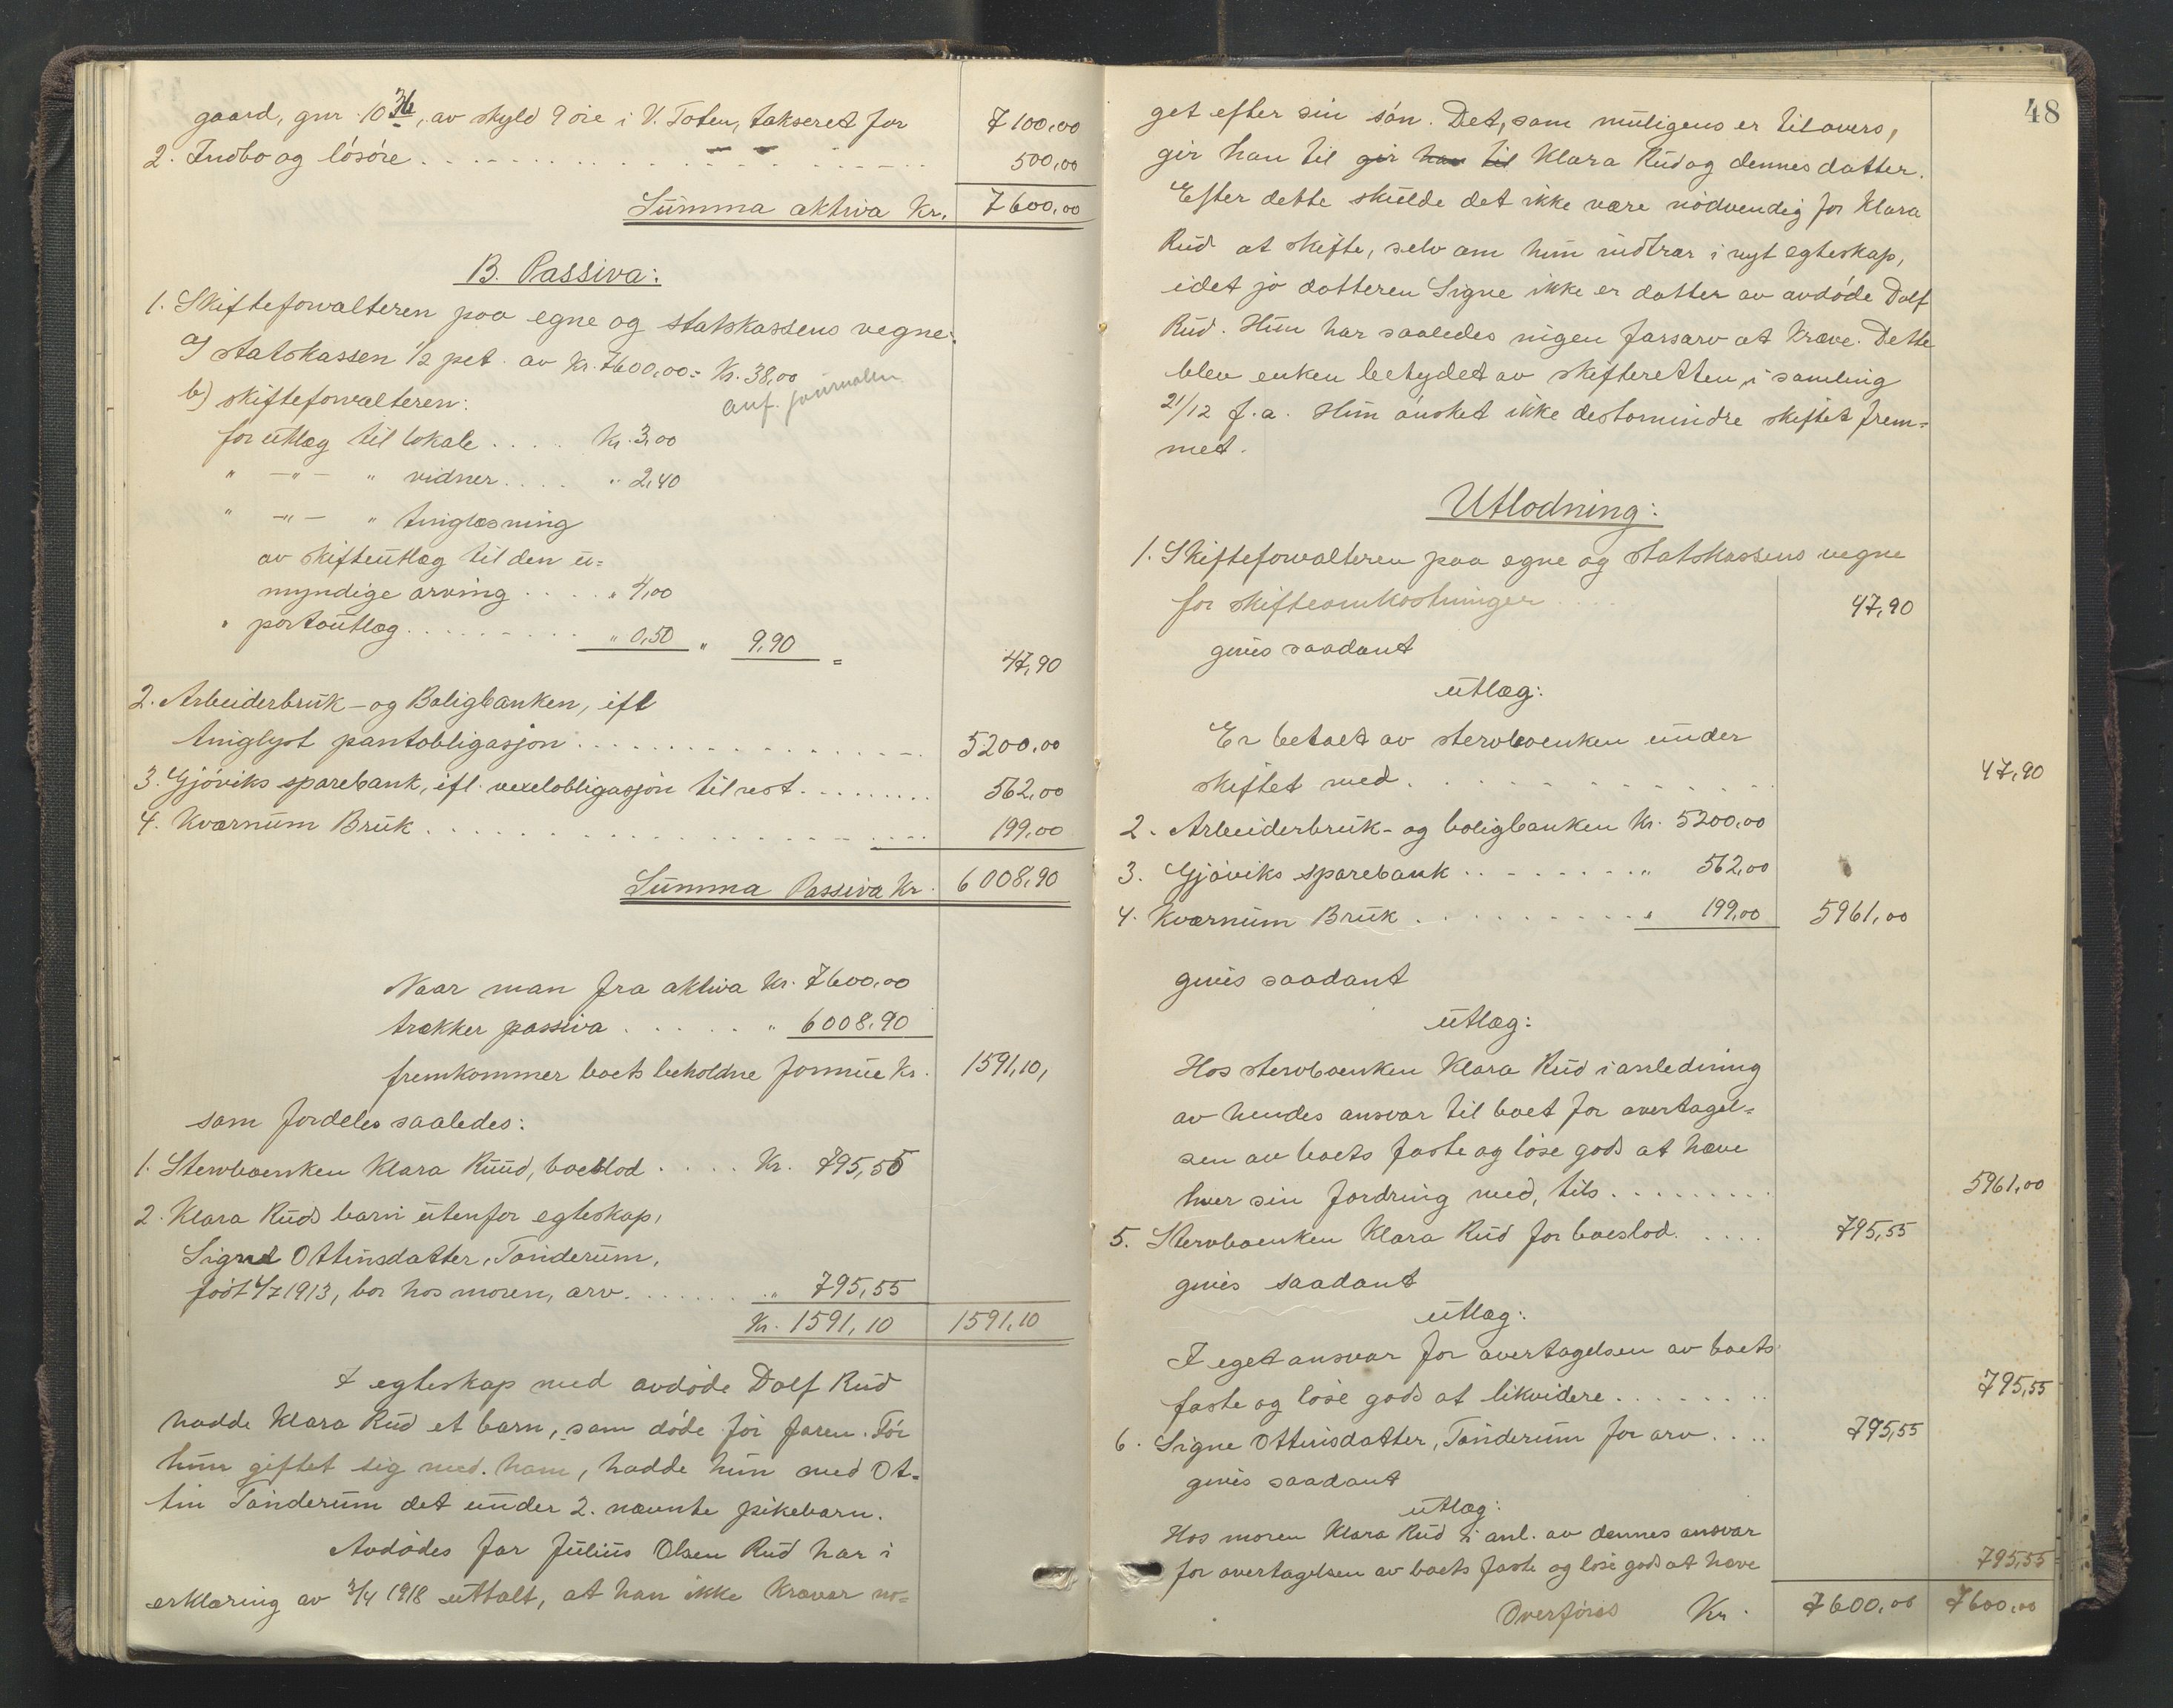 gaard, gnr. 10 36, av skyld 9 øre i V. Toten, takseret for 7100,00
2. Indbo og løsøre . . . . . . . . 500,00
Summa aktiva Kr. 7600,00
B. Passiva:
1. Skifteforvalteren paa egne og statskassens vegne:
a) statskassen 1/2 pct. av Kr. 7600,00 = Kr. 38,00
anf. journalen
b) skifteforvalteren:
for utlæg til lokale . . . . Kr. 3,00
" -"- " vidner . . . . " 2,40
" -"- " tinglæsning
av skifteutlæg til den u=
myndige arving . . . . . " 4,00
" portoutlæg . . . . . . . . . " 0,50 " 9,90 = 47,90
2. Arbeiderbruk- og Boligbanken, ifl
tinglyst pantobligasjon . . . . . . . . 5200,00
3. Gjøviks sparebank, ifl. vexelobligasjon til rest . . . . . . . . 562,00
4. Kværnum Bruk . . . . . . . . 199,00
Summa Passiva Kr. 6008,90
Naar man fra aktiva Kr. 7600,00
trækker passiva . . . . . . " 6008,90
fremkommer boets beholdne formue Kr. 1591,10,
som fordeles saaledes:
1. Stervboenken Klara Ruud, boeslod . . . . Kr. 795,55
2. Klara Ruds barn utenfor egteskap,
Signe Ottinsdatter, Tønderum,
født 4/7 1913, bor hos moren, arv . . . . . . . " 795,55
Kr. 1591,10 1591,10
I egteskap med avdøde Dolf Rud
hadde Klara Rud et barn, som døde før faren. Før
hun giftet sig med ham, hadde hun med Ot=
tin Tønderum det under 2. nævnte pikebarn.
Avdødes far Julius Olsen Rud har i
erklæring av 3/4 1918 uttalt, at han ikke kræver no=
48
get efter sin søn. Det, som muligens er tilovers,
gir han til gir han til Klara Rud og dennes datter.
Efter dette skulde det ikke være nødvendig for Klara
Rud at skifte, selv om hun indtrær i nyt egteskap,
idet jo datteren Signe ikke er datter av avdøde Dolf
Rud. Hun har saaledes ingen farsarv at kræve. Dette
blev enken betydet av skifteretten, i samling
21/12 f.a. Hun ønsket ikke destomindre skiftet frem=
met.
Utlodning:
1. Skifteforvalteren paa egne og statskassens vegne
for skifteomkostninger . . . . 47,90
gives saadant
utlæg:
Er betalt av stervboenken under
skiftet med . . . . . . . . 47,90
2. Arbeiderbruk- og boligbanken Kr. 5200,00
3. Gjøviks sparebank . . . . . . . . " 562,00
4. Kværnum Bruk . . . . . . . . . . " 199,00 5961,00
gives saadant
utlæg:
Hos stervboenken Klara Rud i anledning
av hendes ansvar til boet for overtagel=
sen av boets faste og løse gods at hæve
hver sin fordring med, tils. . . . . . . . 5961,00
5. Stervboenken Klara Rud for boeslod . . . . . 795,55
gives saadant
utlæg:
I eget ansvar for overtagelsen av boets
faste og løse gods at likvidere . . . . . . . . 795,55
6. Signe Ottinsdatter, Tønderum for arv . . . . 795,55
gives saadant
utlæg:
Hos moren Klara Rud i anl. av dennes ansvar
for overtagelsen av boets faste og løse gods at hæve 795,55
Overføres Kr. 7600,00 7600,00